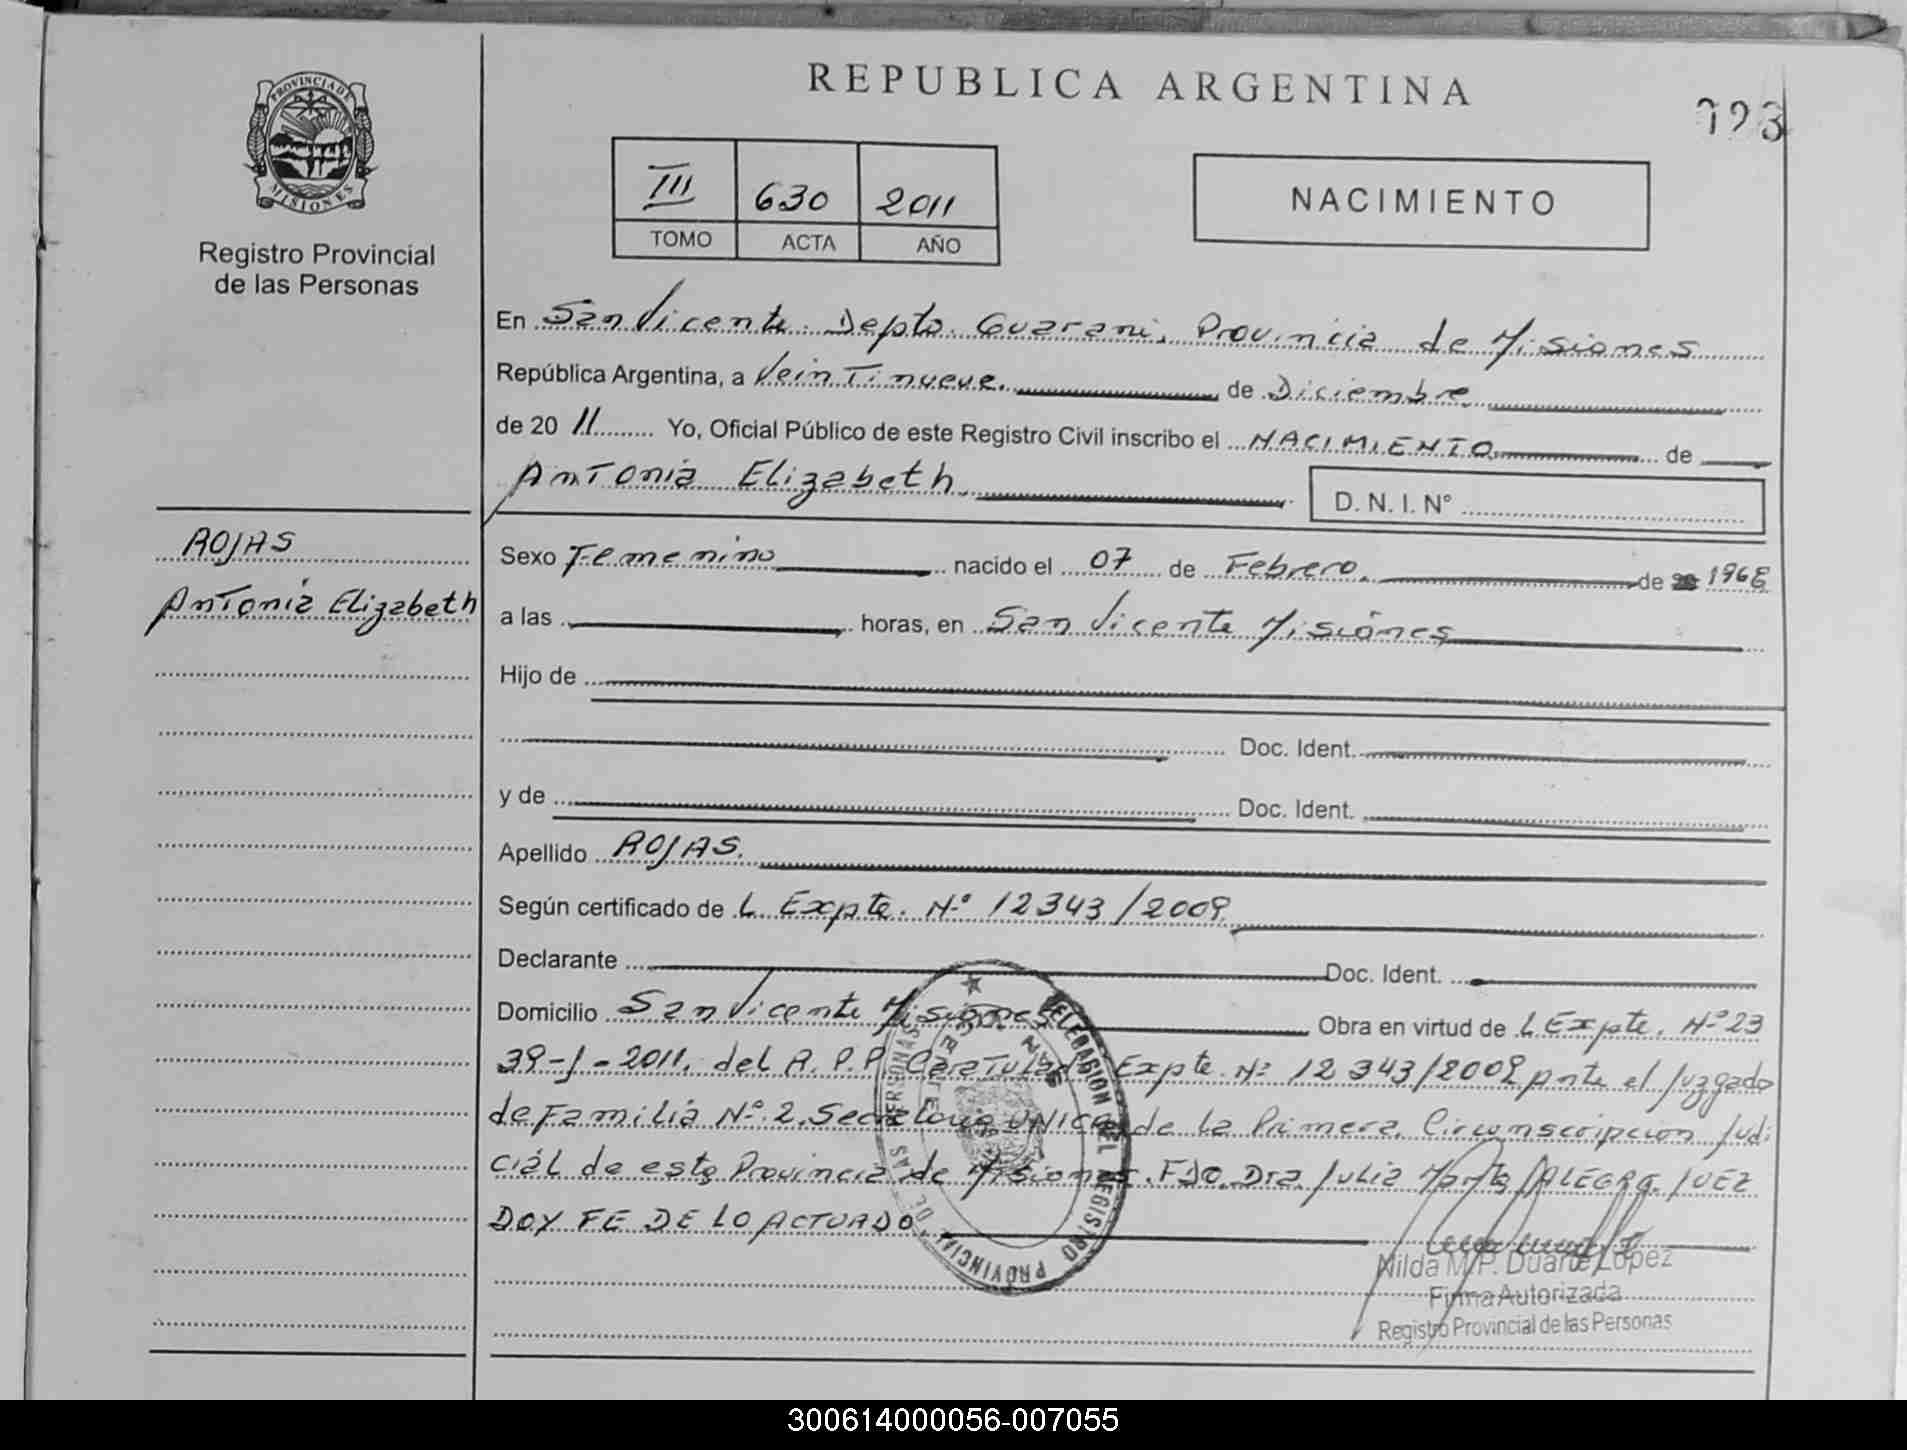 REPUBLICA ARGENTINA
PROVINCIA DE MISIONES
Registro Provincial
de las Personas
III 630 2011
TOMO ACTA AÑO
NACIMIENTO
En San Vicente. Depto. Guarani, Provincia de Misiones
República Argentina, a Veintinueve. de Diciembre
de 2011 Yo, Oficial Público de este Registro Civil inscribo el NACIMIENTO de
Antonia Elizabeth
D. N. I. N°
ROJAS
Antonia Elizabeth
Sexo Femenino nacido el 07 de Febrero. de 1968
a las horas, en San Vicente Misiones
Hijo de
Doc. Ident.
y de Doc. Ident.
Apellido ROJAS.
Según certificado de L. Expte. N.º 12343/2009
Declarante Doc. Ident.
Domicilio San Vicente Misiones Obra en virtud de L. Expte. Nº 23
39-J-2011. del R.P.P. Caratulado Expte. Nº 12343/2009 ante el Juzgado
de Familia Nº 2, Secretaria UNICA de la Primera Circunscripcion Judi
cial de esta Provincia de Misiones. FDO. Dra. Julia Marta ALEGRE. JUEZ
DOY FE DE LO ACTUADO
DELEGACION DEL REGISTRO PROVINCIAL DE LAS PERSONAS
Nilda M.P. Duarte Lopez
Firma Autorizada
Registro Provincial de las Personas
300614000056-007055